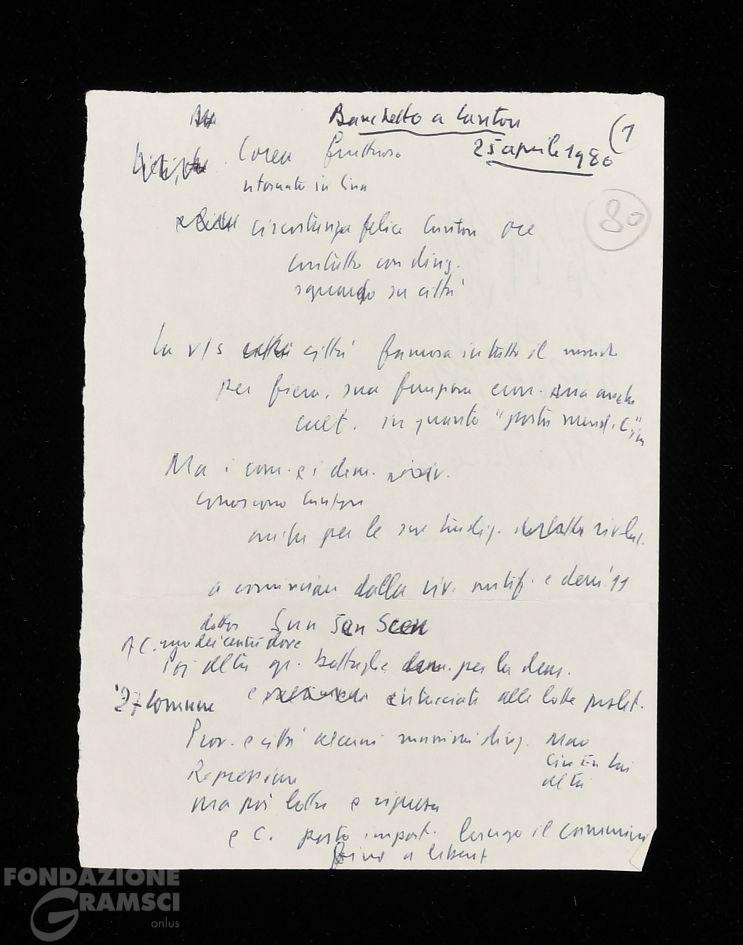 Banchetto a Canton
(1
25 aprile 1980
80
Corea fruttuosa
ritornato in Cina
circostanza felice Canton ore
contatto con dirig.
sguardo su città
La v/s città famosa in tutto il mondo
per fiera, sua funzione econ. ma anche
cult. in quanto "porta merid. Cina"
Ma i com. e i dem.
conoscono Canton
anche per le sue tradiz. rivoluz.
a cominciare dalla riv. antif. e dem. '11
dottor Sun
A C. uno dei centri dove
Poi altre gr. battaglie per la dem.
'27 Comune
e intrecciate alle lotte prolet.
Prov. e città alcuni massimi dirig. Mao
Ciu En Lai
altri
Repressione
ma poi lotta e ripresa
e C. posto import. lungo il cammino
fino a liberat
FONDAZIONE
GRAMSCI
onlus